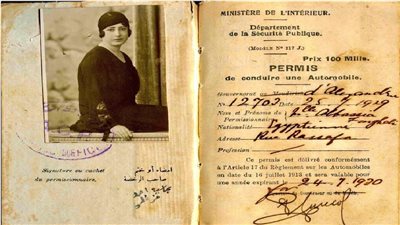 Signature ou cachet
du permissionnaire.
امضاء أو ختم
صاحب الرخصة
MINISTÈRE DE L'INTÉRIEUR.
Département
de la Sécurité Publique.
(MODÈLE N° 117 J.)
Prix 100 Mills.
PERMIS
de conduire une Automobile.
Gouvernorat ou d'Alexandrie
N° 12703 Date 25-7-1929
Nom et Prénoms du
Permissionnaire Abbassia
Nationalité Egyptienne
Adresse Rue
Profession
Ce permis est délivré conformément
à l'Article 17 du Règlement sur les Automobiles
en date du 16 juillet 1913 et sera valable pour
une année expirant le 24-7-1930